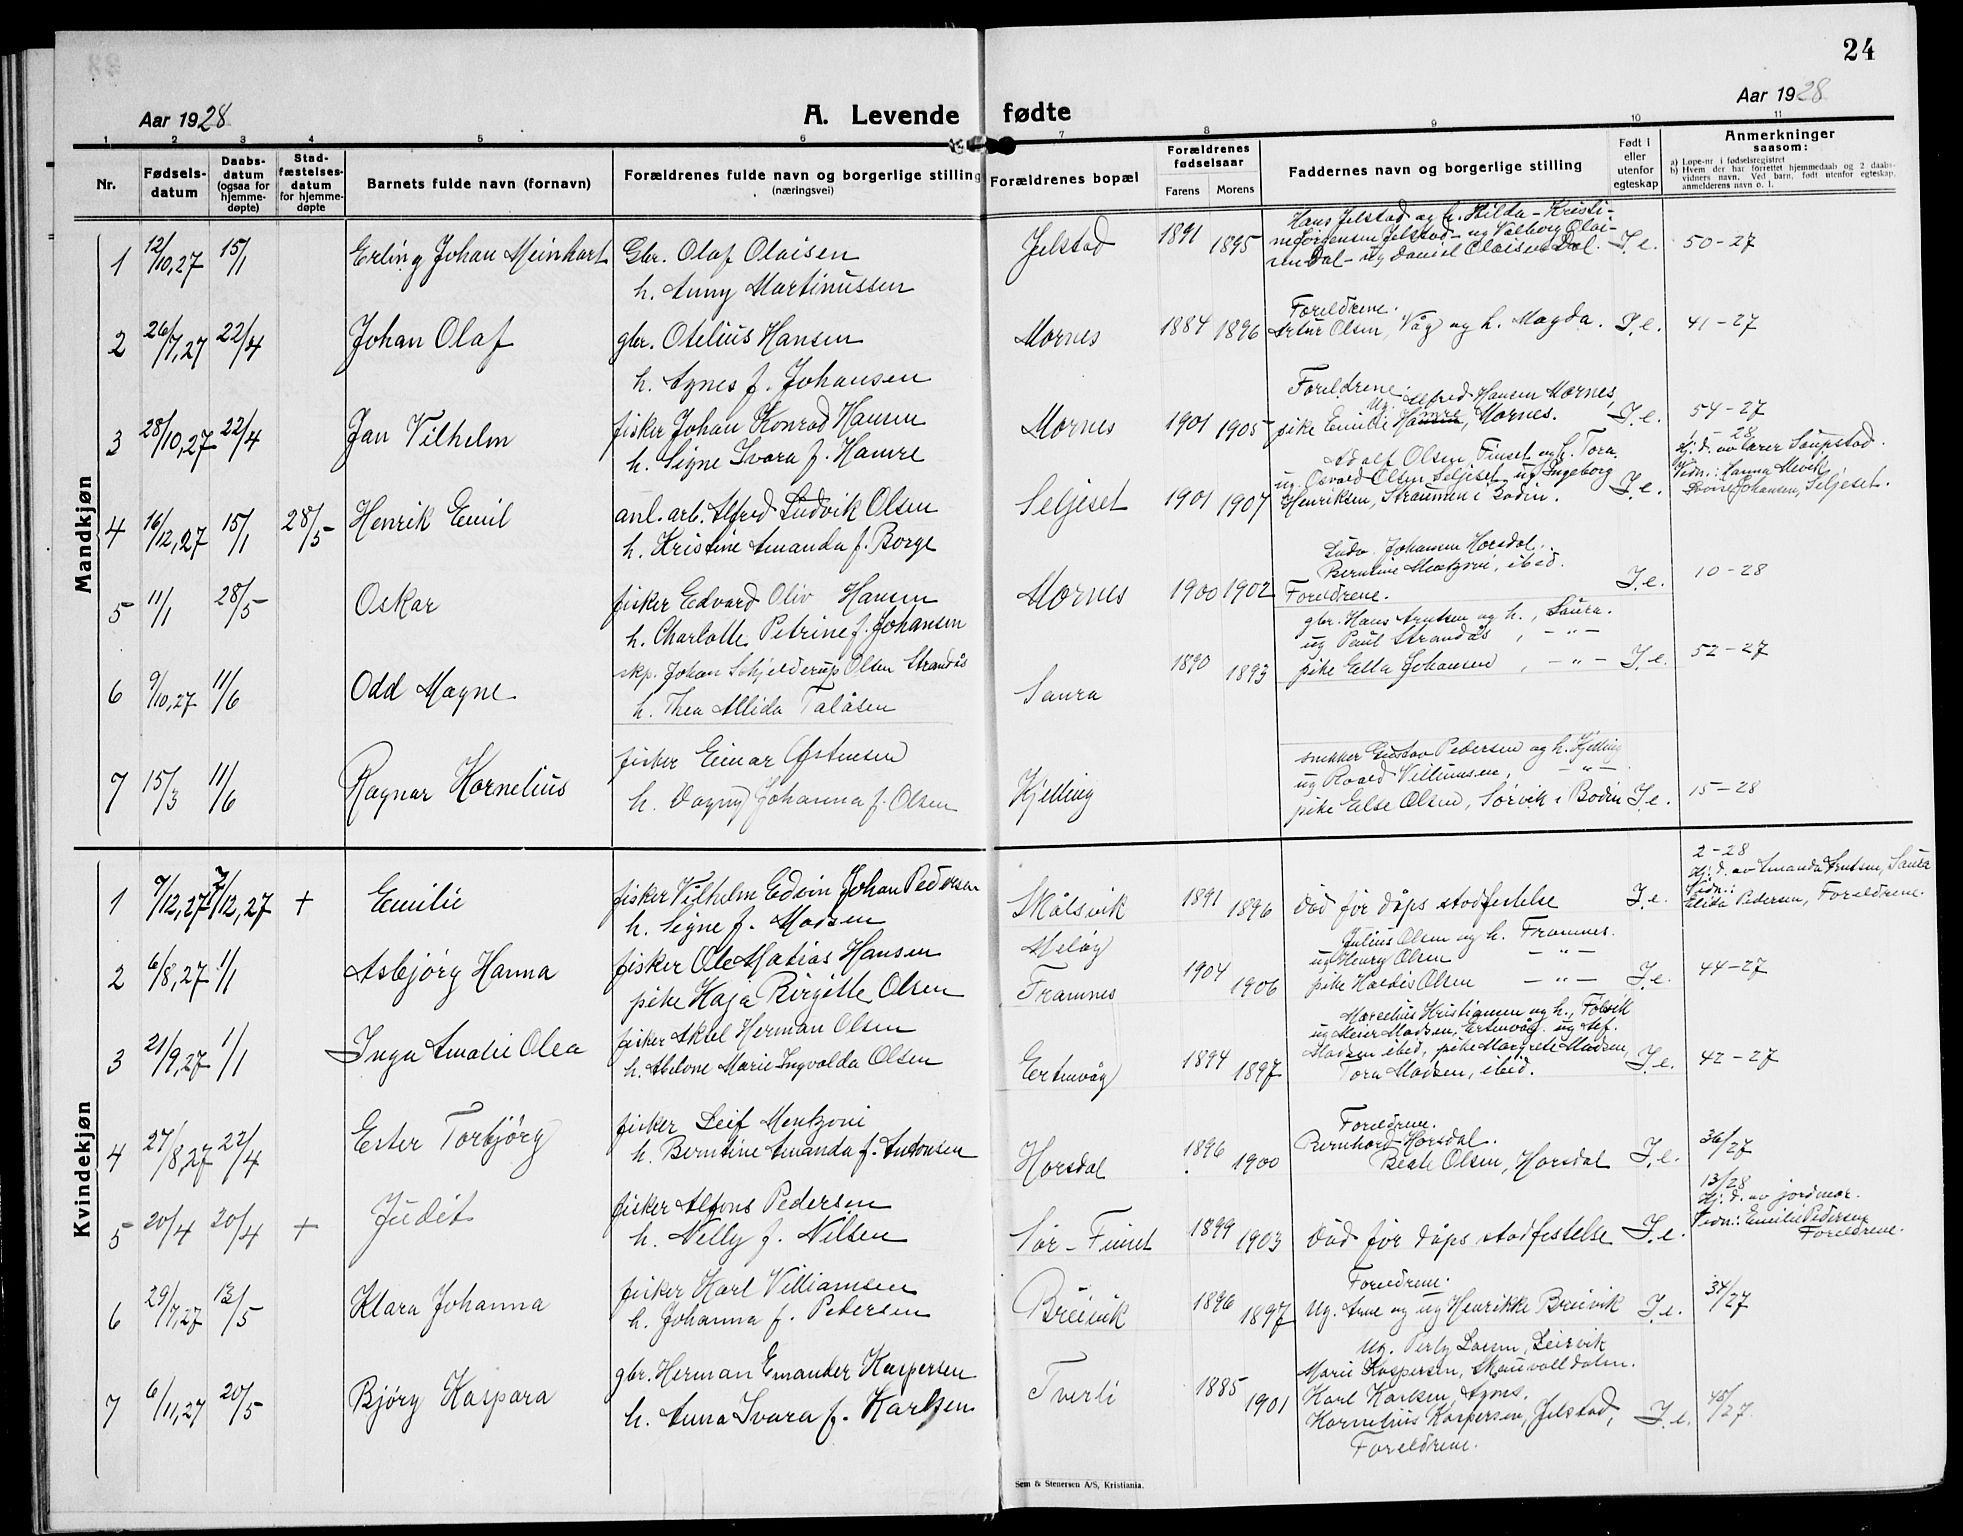 24
Aar 1928
A. Levende fødte
Aar 1928
1 2 3 4 5 6 7 8 9 10 11
Nr.
Fødsels-
datum
Daabs-
datum
(ogsaa for
hjemme-
døpte)
Stad-
fæstelses-
datum
for hjemme-
døpte
Barnets fulde navn (fornavn)
Forældrenes fulde navn og borgerlige stilling
(næringsvei)
Forældrenes bopæl
Forældrenes
fødselsaar
Farens Morens
Faddernes navn og borgerlige stilling
Født i
eller
utenfor
egteskap
Anmerkninger
saasom:
a) Løpe-nr i fødselsregistret
b) Hvem der har forrettet hjemmedaab og 2 daabs-
vidners navn. Ved barn, født utenfor egteskap,
anmelderens navn o. l.
Mandkjøn
1 12/10,27 15/1 Erling Johan Meinhart
Gbr. Olaf Olaisen
h. Anny Martinussen
Jelstad 1891 1895
Hans Jelstad og h. Hilda - Kristi-
ne Sørensen Jelstad - ug Valborg Olai-
sen Dal - ug Daniel Olaisen Dal.
I.e. 50-27
2 26/7,27 22/4 Johan Olaf
gbr. Otelius Hansen
h. Agnes f. Johansen
Mørnes 1884 1896
Foreldrene.
Artur Olsen, Våg og h. Magda.
I.e. 41-27
3 28/10,27 22/4 Jan Vilhelm
fisker Johan Konrad Hansen
h. Signe Ivara f. Hamre
Mørnes 1901 1905
Foreldrene.
Ug. Alfred Hansen Mørnes,
pike Emilie Hamre, Mørnes.
I.e. 54-27
4 16/12,27 15/1 28/5 Henrik Emil
anl. arb. Alfred Ludvik Olsen
h. Kristine Amanda f. Borge
Seljeset 1901 1907
Adolf Olsen Finset og h. Tora,
ug. Osvard Olsen Seljeset, ug. Ingeborg
Henriksen, Straumen i Bodin.
I.e.
1-28
Hj. d. av lærer Saupstad.
Vidn.: Hanna Mevik
Lovise Johansen, Seljeset.
5 11/1 28/5 Oskar
fisker Edvard Oliv Hansen
h. Charlotte Petrine f. Johansen
Mørnes 1900 1902
Ludv. Johansen Horsdal.
Berntine Mentzoni, ibid.
Foreldrene.
I.e. 10-28
6 9/10,27 11/6 Odd Magne
skp. Johan Schjelderup Olsen Strandås
h. Thea Alida Talåsen
Saura 1890 1893
gbr. Hans Arntsen og h., Saura.
ug Paul Strandås , - " -
pike Ella Johansen , - " -
I.e. 52-27
7 15/3 11/6 Ragnar Kornelius
fisker Einar Østensen
h. Dagny Johanna f. Olsen
Kjelling
snekker Gustav Pedersen og h. Kjelling
ug Roald Villumsen, - " -
pike Else Olsen, Sørvik i Bodin
I.e. 15-28
Kvindekjøn
1 7/12,27 7/12,27 + Emilie
fisker Vilhelm Edvin Johan Pedersen
h. Signe f. Madsen
Skålsvik 1891 1896
Död för dåps stadfestelse
I.e.
2-28
Hj. d. av Amanda Arntsen, Saura
Vidn.:
Elida Pedersen, Foreldrene.
2 6/8,27 1/1 Asbjörg Hanna
fisker Ole Matias Hansen
pike Kaja Birgitte Olsen
Meløy
Framnes 1904 1906
Julius Olsen og h. Framnes.
ug Henry Olsen - " -
pike Haldis Olsen - " -
I.e. 44-27
3 21/9,27 1/1 Inga Amalie Olea
fisker Aksel Herman Olsen
h. Helene Marie Ingvalda Olsen
Ertenvåg 1894 1897
Marselius Kristiansen og h.,
ug Meier Madsen, Ertenvåg. ug Alf.
Madsen ibid, pike Margrete Madsen,
Tora Madsen, ibid.
I.e. 42-27
4 27/8,27 22/4 Ester Torbjörg
fisker Leif Mentzoni
h. Berntine Amanda f. Antonsen
Horsdal 1896 1900
Foreldrene.
Bernhard Horsdal.
Beate Olsen, Horsdal
I.e. 36/27
5 20/4 20/4 + Judit
fisker Alfons Pedersen
h. Nelly f. Nilsen
Sør-Finset 1899 1903
Död för dåps stadfestelse
I.e.
13/28
Hj. d. av jordmor.
Vidn: Emilie Pedersen
Foreldrene.
6 29/7,27 13/5 Klara Johanna
fisker Karl Villiamsen
h. Johanna f. Pedersen
Breivik 1896 1897
Foreldrene.
Ug. Arne og ug Henrikke Breivik
I.e. 34/27
7 6/11,27 20/5 Bjørg Kaspara
gbr. Herman Emanker Kaspersen
h. Anna Ivara f. Karlsen
Tverli 1885 1901
Ug. Perly Larsen, Leirvik
Marie Kaspersen, Skauvolldalen.
Karl Karlsen, Agnes.
Kornelius Kaspersen, Jelstad,
Foreldrene.
I.e. 48/27
Sem & Stenersen A/S, Kristiania.